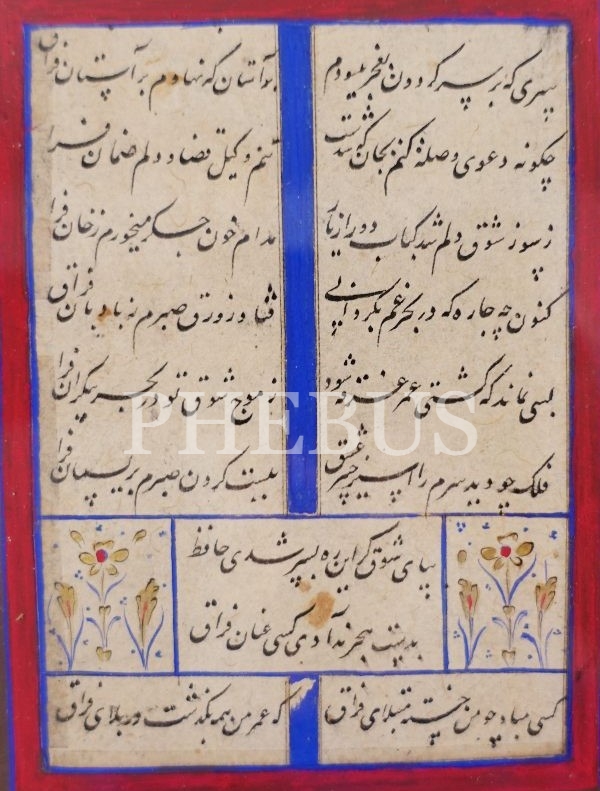 سری که بر سر گردون بفخر میسودم بر آستان که نهادم بر آستان فراق
چگونه دعوی وصلت کنم بجان که شدست تنم وکیل قضا و دلم ضمان فراق
ز سوز شوق دلم شد کباب دور از یار مدام خون جگر میخورم ز خوان فراق
کنون چه چاره که در بحر غم بگردابی فتاد زورق صبرم ز بادبان فراق
بسی نماند که کشتی عمر غرقه شود ز موج شوق تو در بحر بیکران فراق
فلک چو دید سرم را اسیر چنبر عشق ببست گردن صبرم بریسمان فراق
بپای شوق گر این ره بسر شدی حافظ
بدست هجر ندادی کسی عنان فراق
کسی مباد چو من خسته مبتلای فراق که عمر من همه بگذشت در بلای فراق
PHEBUS